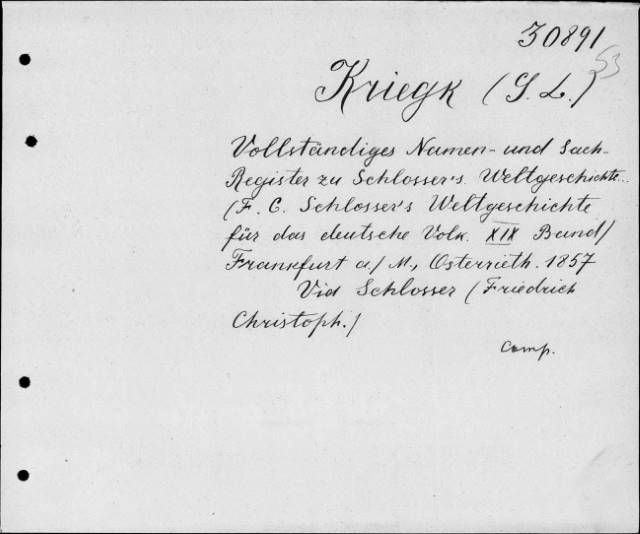 30891
53
Kriegk (G. L.)
Vollständiges Namen- und Sach-
Register zu Schlosser's Weltgeschichte...
(F. C. Schlosser's Weltgeschichte
für das deutsche Volk. XIX Band)
Frankfurt a/M., Osterrieth. 1857
Vid Schlosser (Friedrich
Christoph.)
Comp.